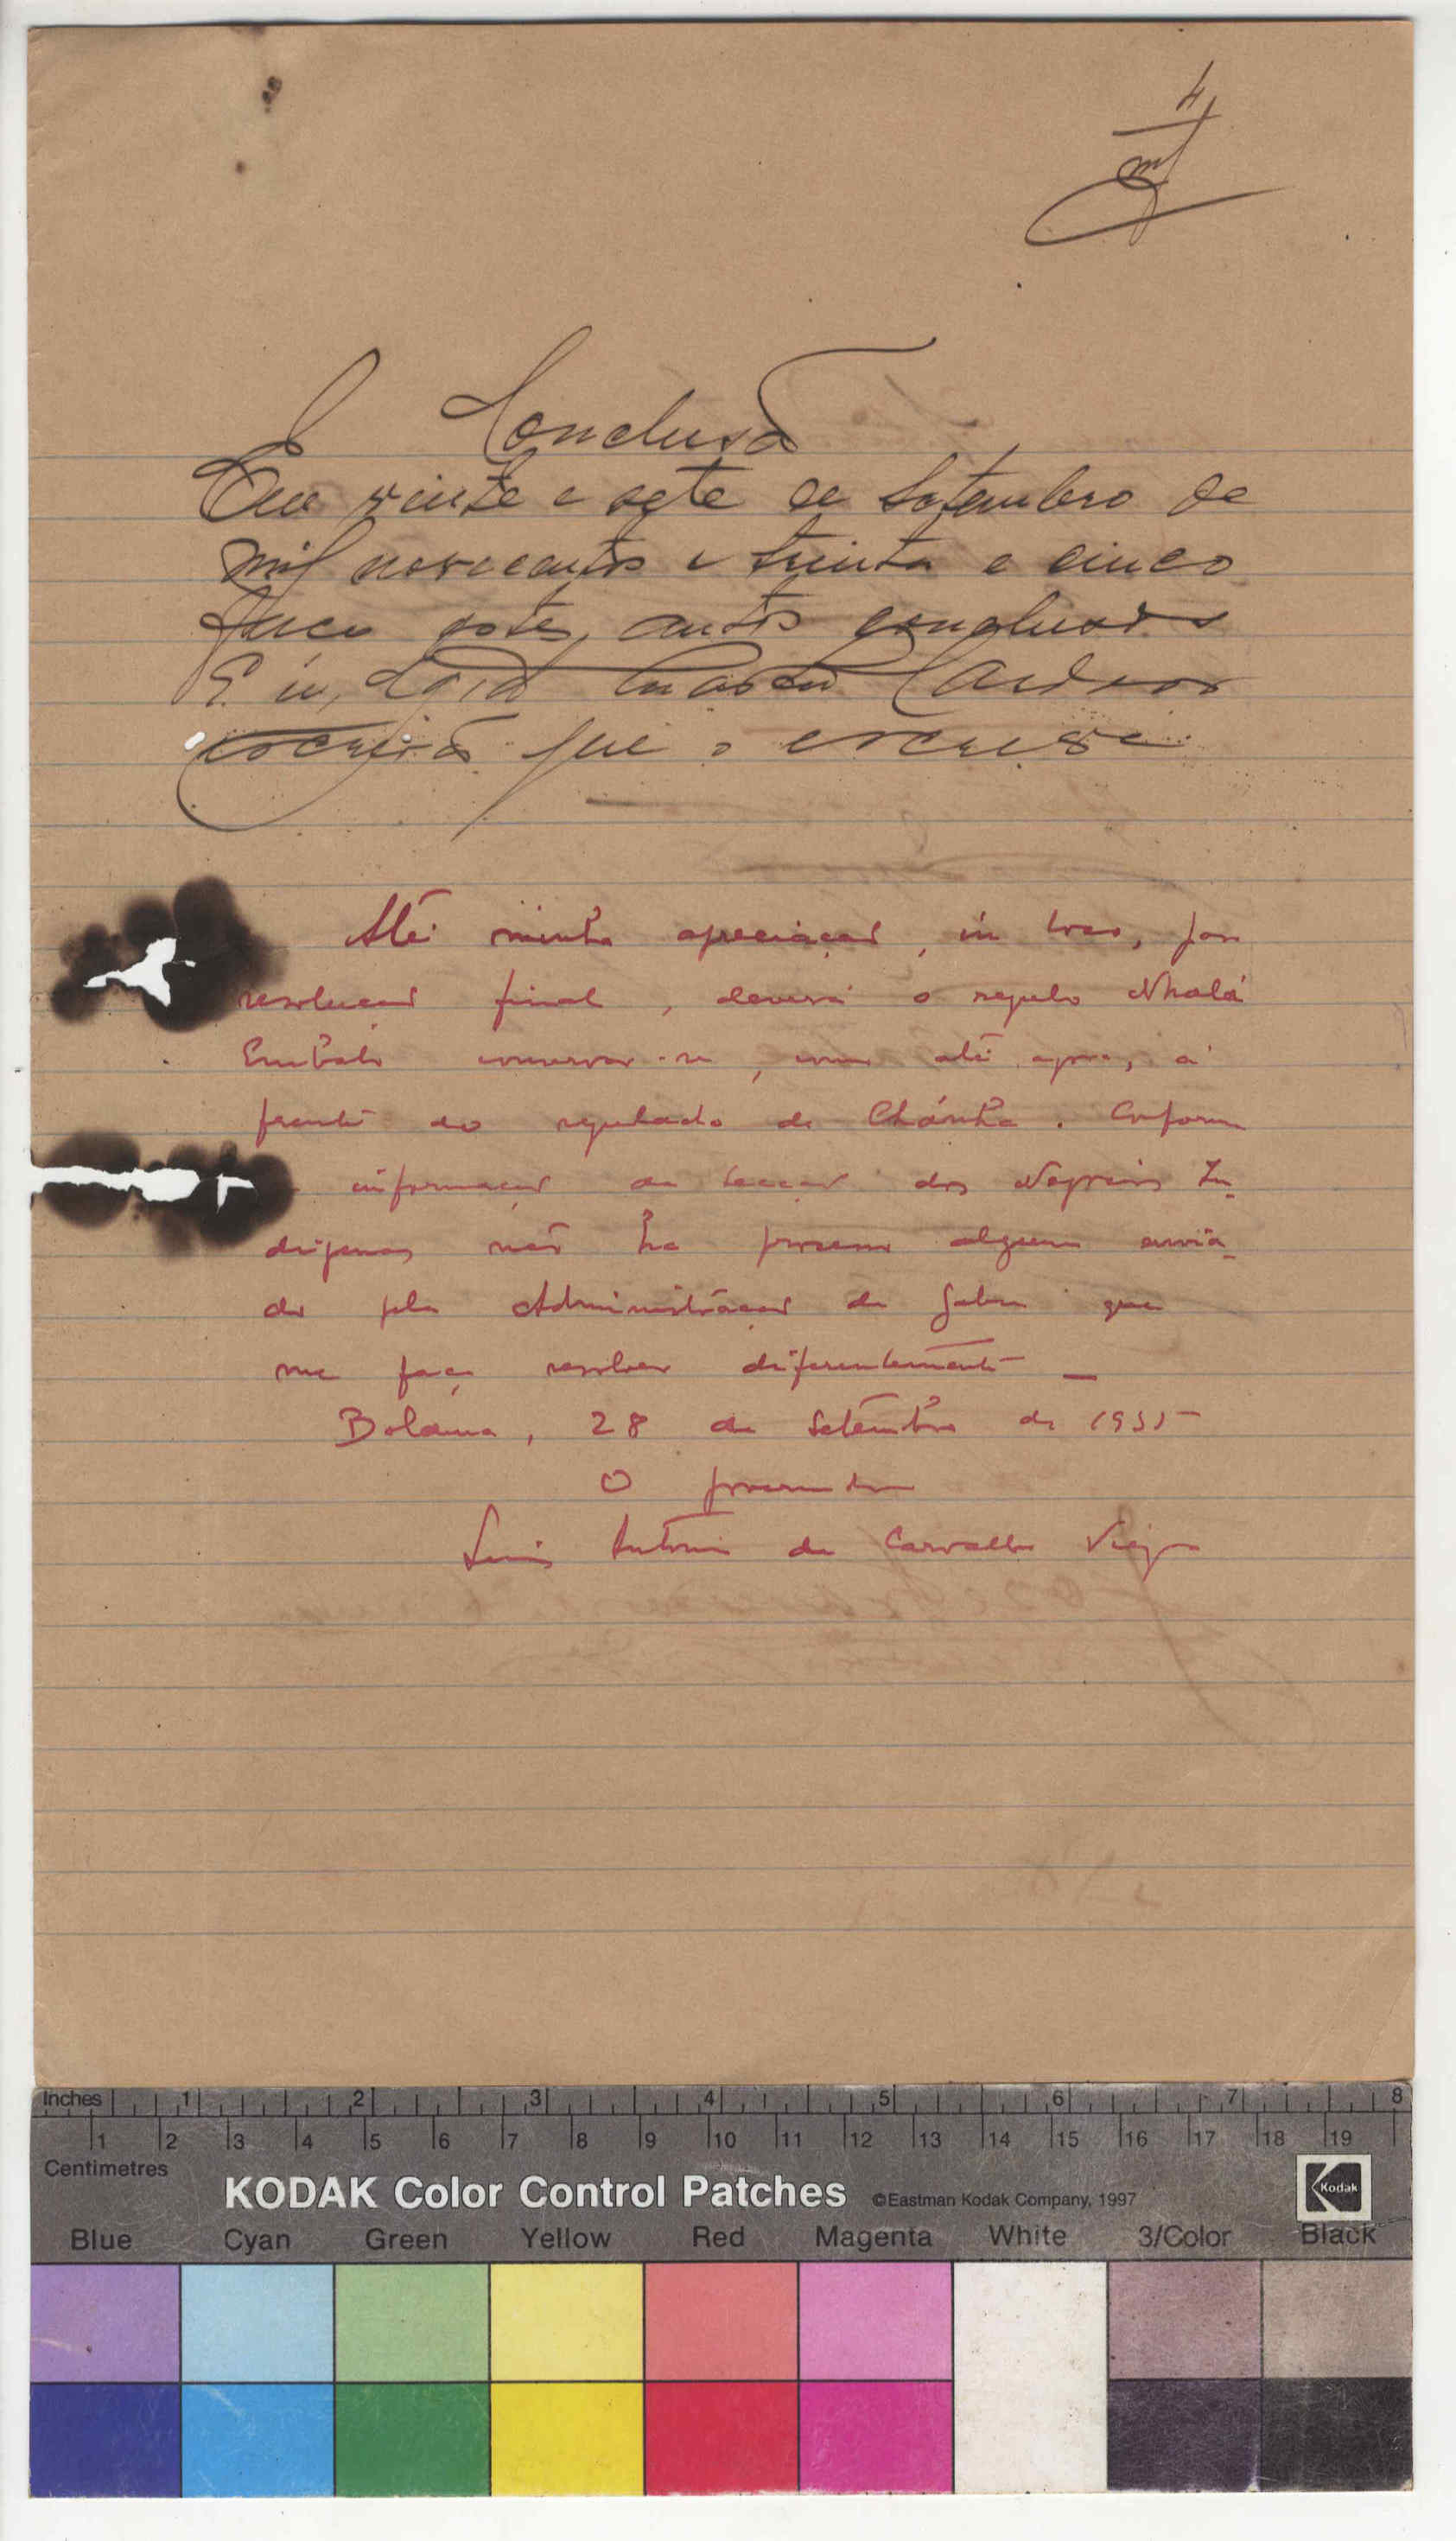 4
Conclusão
Aos vinte e sete de Setembro de
mil novecentos e trinta e cinco
faço estes autos conclusos
E eu, Cardoso
escrivão que o escrevi.
Até minha apreciação, in loco, para
resolução final, deverá o regulo Nhalá
Embaló conservar-se, como até agora, à
frente do regulado de Chánha. Conforme
informação da Secção dos Negocios In-
digenas não ha processo algum envia-
do pela Administração de Gabu que
me faça resolver diferentemente —
Bolama, 28 de Setembro de 1935
O
Luis Antonio de Carvalho Viegas
Inches 1 2 3 4 5 6 7 8
1 2 3 4 5 6 7 8 9 10 11 12 13 14 15 16 17 18 19
Centimetres
KODAK Color Control Patches ©Eastman Kodak Company, 1997 Kodak
Blue Cyan Green Yellow Red Magenta White 3/Color Black